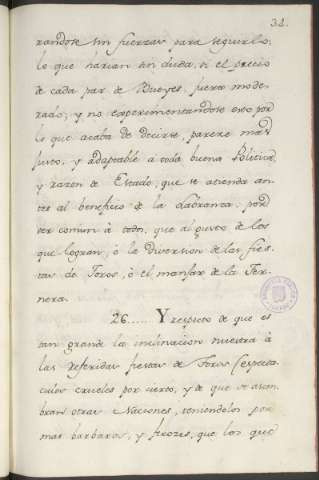 32.
randose sin fuerzas para seguirlo;
lo que harian sin duda, si el precio
de cada par de Bueyes, fuera mode-
rado; y no experimentandose esto por
lo que acaba de decirse, parece mas
justo, y adaptable à toda buena Politica,
y razon de Estado, que se atienda an-
tes al beneficio de la labranza, por
ser comun à todos, que al gusto de los
que logran, ò la diversion de las fies-
tas de Toros, ò el manjar de la Ter-
nera.
26..... Y respecto de que es
tan grande la inclinacion nuestra à
las referidas fiestas de Toros (especta-
culos crueles por cierto, y de que se asom-
bran otras Naciones, teniendolos por
mas barbaros, y feroces, que los que